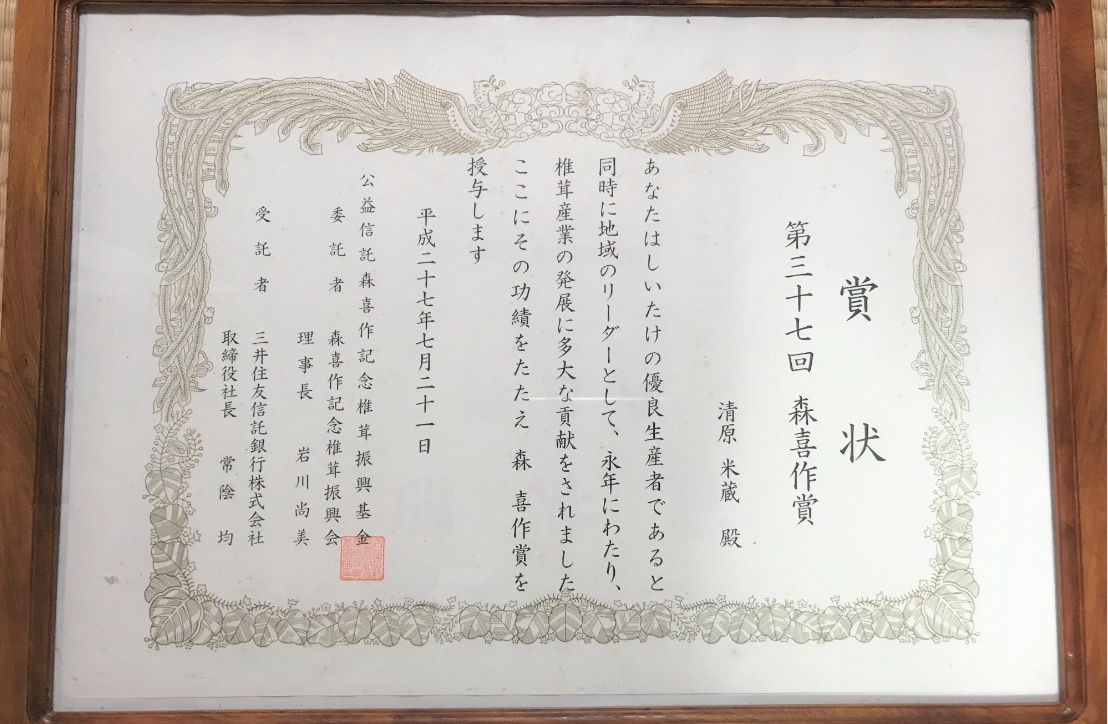 賞状
第三十七回 森喜作賞
清原 米蔵 殿
あなたはしいたけの優良生産者であると
同時に地域のリーダーとして、永年にわたり、
椎茸産業の発展に多大な貢献をされました
ここにその功績をたたえ 森 喜作賞を
授与します
平成二十七年七月二十一日
公益信託森喜作記念椎茸振興基金
委託者 森喜作記念椎茸振興会
理事長 岩川尚美
受託者 三井住友信託銀行株式会社
取締役社長 常陰 均